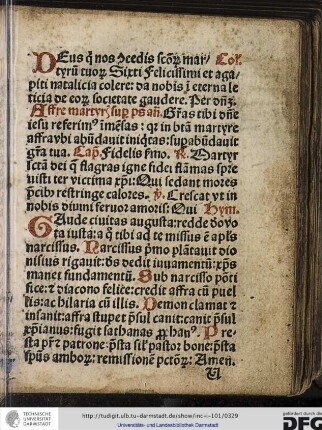 DEus q̃ nos ↄcedis scõꝝ mar/ Coł.
tyrũ tuoꝝ Sixti Felicissimi et aga/
piti natalicia colere: da nobis ĩ eterna le
ticia de eoꝝ societate gaudere. Per dñȝ.
Affre martyrꝭ suꝑ ps añ. Gr̃as tibi dñe
iesu referimꝰ ĩmẽsas: qꝛ in btã martyre
affra vbi abũdauit iniq̃tas: supabũdauit
gr̃a tua. Cap̃. Fidelis ſmo. R. Martyr
scã dei q̃ flagras igne fidei flãmas spre
uisti ter victima xp̃i: Qui sedant mores
p̃cibꝰ restringe calores. v. Crescat yt in
nobis diuini feruor amoris: Qui Hym.
GAude ciuitas augusta: redde ꝺo vo
ta iusta: a q̃ tibi ad te missus ẽ apl̃s
narcissus. Narcissus pͥmo plãtauit dio
nisius rigauit: ds dedit iuuamentũ: xp̃s
manet fundamentũ. Sub narcisso põti
fice: ⁊ diacono felice: credit affra cũ puel
lis: ac hilaria cũ illis. Demon clamat ⁊
insanit: affra stupet p̃sul canit: canit p̃sul
xp̃ianus: fugit sathanas ꝓphanꝰ. Pre
sta pr̃ ⁊ patrone: p̃sta sil̃ pastoꝛ bone: p̃sta
sp̃us amboꝝ: remissionẽ pctõꝝ: Amen.
TECHNISCHE
UNIVERSITÄT
DARMSTADT
http://tudigit.ulb.tu-darmstadt.de/show/inc-i-101/0329
Universitäts- und Landesbibliothek Darmstadt
gefördert durch die
DFG